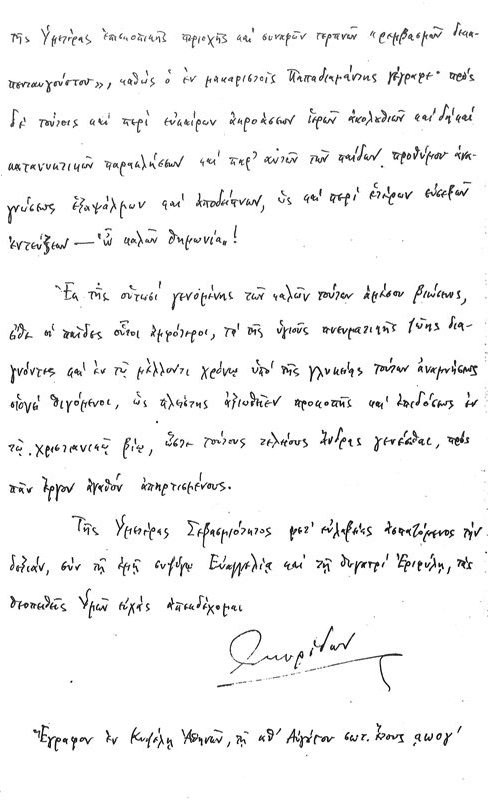 τῆς Ὑμετέρας ἐπισκοπικῆς περιοχῆς καί συναφῶν τερπνῶν «ρεμβασμῶν δεκα-
πενταυγούστου», καθώς ὁ ἐν μακαριστοῖς Παπαδιαμάντης γέγραφε· πρός
δέ τούτοις καί περί εὐκαίρων ἀκροάσεων ἱερῶν ἀκολουθιῶν καί δή καί
κατανυκτικῶν παρακλήσεων καί παρ' αὐτῶν τῶν παίδων προθύμου ἀνα-
γνώσεως ἑξαψάλμων καί ἀποδείπνων, ὡς καί περί ἑτέρων εὐσεβῶν
ἐντεύξεων — "ὤ καλῶν θημωνία"!
Ἐκ τῆς οὑτωσί γενομένης τῶν καλῶν τούτων ἀμέσου βιώσεως,
εἴθε οἱ παῖδες οὗτοι ἀμφότεροι, τά τῆς ὑγιοῦς πνευματικῆς ζωῆς δια-
γνόντες καί ἐν τῷ μέλλοντι χρόνῳ ὑπό τῆς γλυκείας τούτων ἀναμνήσεως
οἱονεί θιγόμενοι, ὡς πλείστης ἀξιωθεῖεν προκοπῆς καί ἐπιδόσεως ἐν
τῷ χριστιανικῷ βίῳ, ὥστε τούτους τελείους ἄνδρας γενέσθαι, πρός
πᾶν ἔργον ἀγαθόν ἀπηρτισμένους.
Τῆς Ὑμετέρας Σεβασμιότητος μετ' εὐλαβείας ἀσπαζόμενος τήν
δεξιάν, σύν τῇ ἐμῇ συζύγῳ Εὐαγγελίᾳ καί τῇ θυγατρί Ἐριφύλῃ, τάς
θεοπειθεῖς Ὑμῶν εὐχάς ἀπεκδέχομαι
Σπυρίδων
Ἔγραφον ἐν Κυψέλῃ Ἀθηνῶν, τῇ κθ' Αὐγούστου σωτ. ἔτους